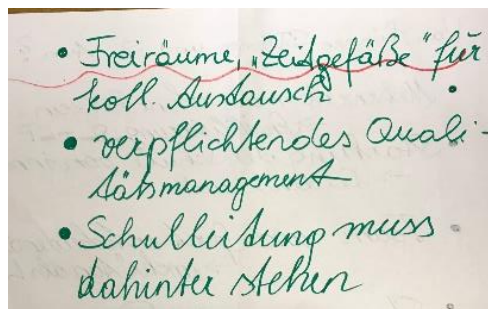 • Freiräume, „Zeitgefäße“ für
koll. Austausch
• verpflichtendes Quali-
tätsmanagement
• Schulleitung muss
dahinter stehen